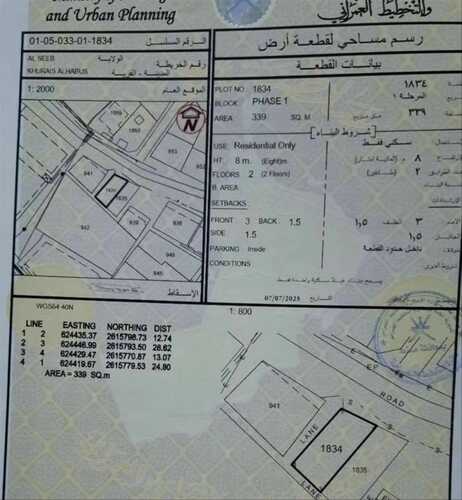 and Urban Planning
والتخطيط العمراني
01-05-033-01-1834
الرقم المسلسل
رسم مساحي لقطعة أرض
AL SEEB
الولاية
KHURAIS ALHABUS
المدينة - القرية
رقم الخريطة
بيانات القطعة
1: 2000
الموقع العام
PLOT NO 1834
١٨٣٤
BLOCK PHASE 1
المرحلة ١
AREA 339 SQ. M
٣٣٩
شروط البناء
USE Residential Only
سكني فقط
HT. 8 m. (Eight)m.
٨ م
FLOORS 2 (2 Floors)
٢
B. AREA
SETBACKS
FRONT 3 BACK 1.5
٣ الخلف ١,٥
SIDE 1.5
١,٥
PARKING Inside
داخل حدود القطعة
CONDITIONS
07/07/2025
التاريخ
الاسقاط
1868
1869
853
941
1834
1835
942
938
939
WGS84 40N
1: 800
LINE EASTING NORTHING DIST
1 2 624435.37 2615798.73 12.74
2 3 624446.99 2615793.50 26.62
3 4 624429.47 2615770.87 13.07
4 1 624419.67 2615779.53 24.80
AREA = 339 SQ.m
ROAD
941
LANE
1834
1835
LANE